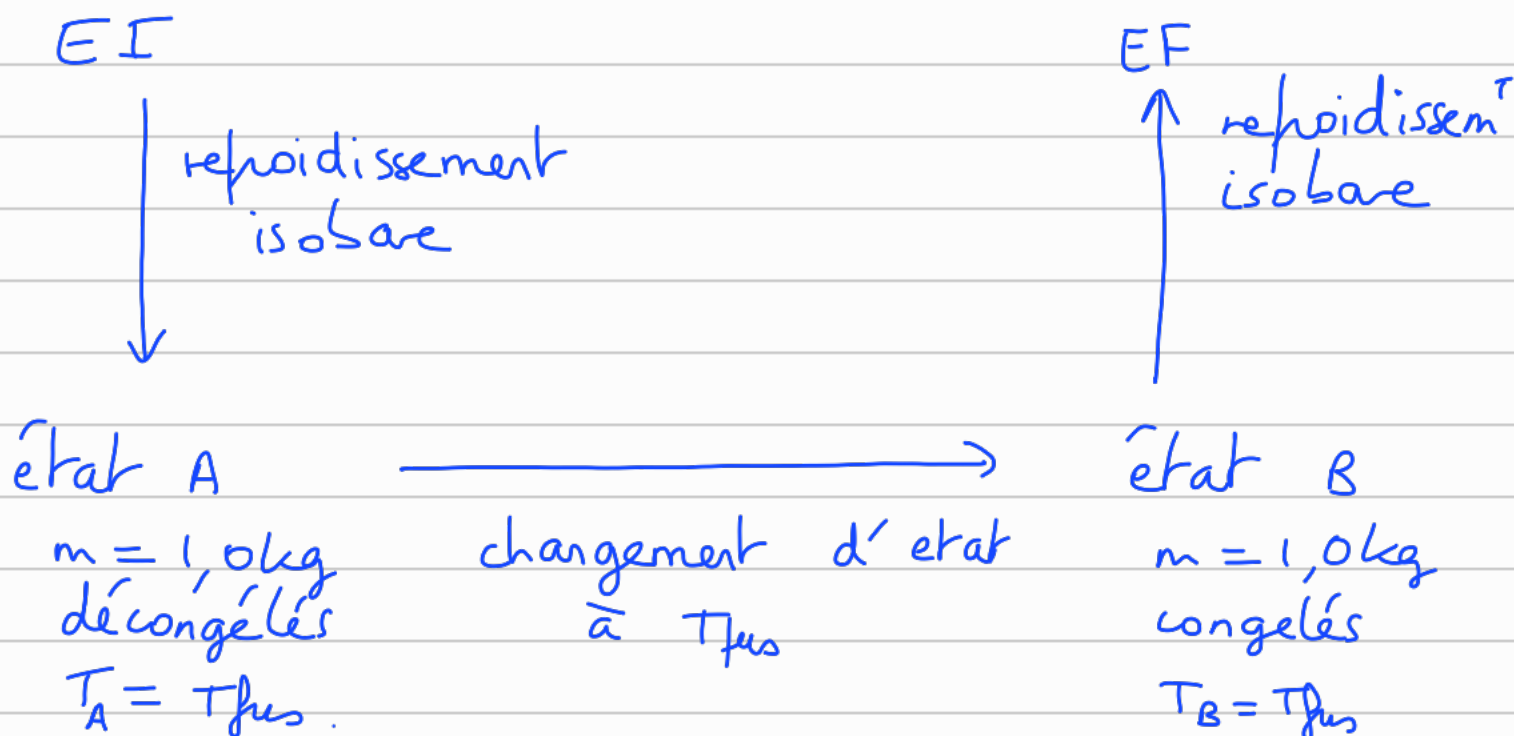 EI
EF
refroidissement
isobare
refroidissemT
isobare
état A
état B
m = 1,0kg
décongélés
TA = Tfus.
changement d'etat
à Tfus
m = 1,0kg
congelés
TB = Tfus